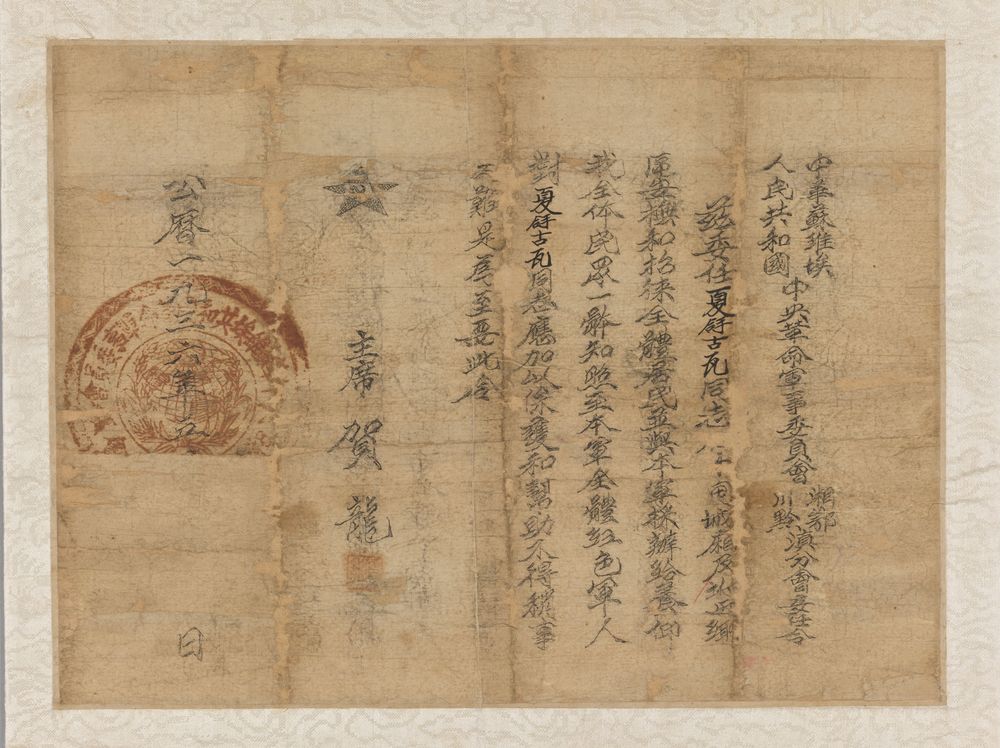 中華蘇維埃
人民共和國
中央革命軍事委員會
湘鄂
川黔
滇分會委任令
茲委任夏拿古瓦同志
城廂及附近鄉
民眾撫和招徠全體居民並與本軍採辦給養仰
我全体民眾一齊知照至本軍全體紅色軍人
對夏拿古瓦同志應加以保護和幫助不得稍事
為難是為至要此令
主席 賀龍
公曆一九三六年五 日